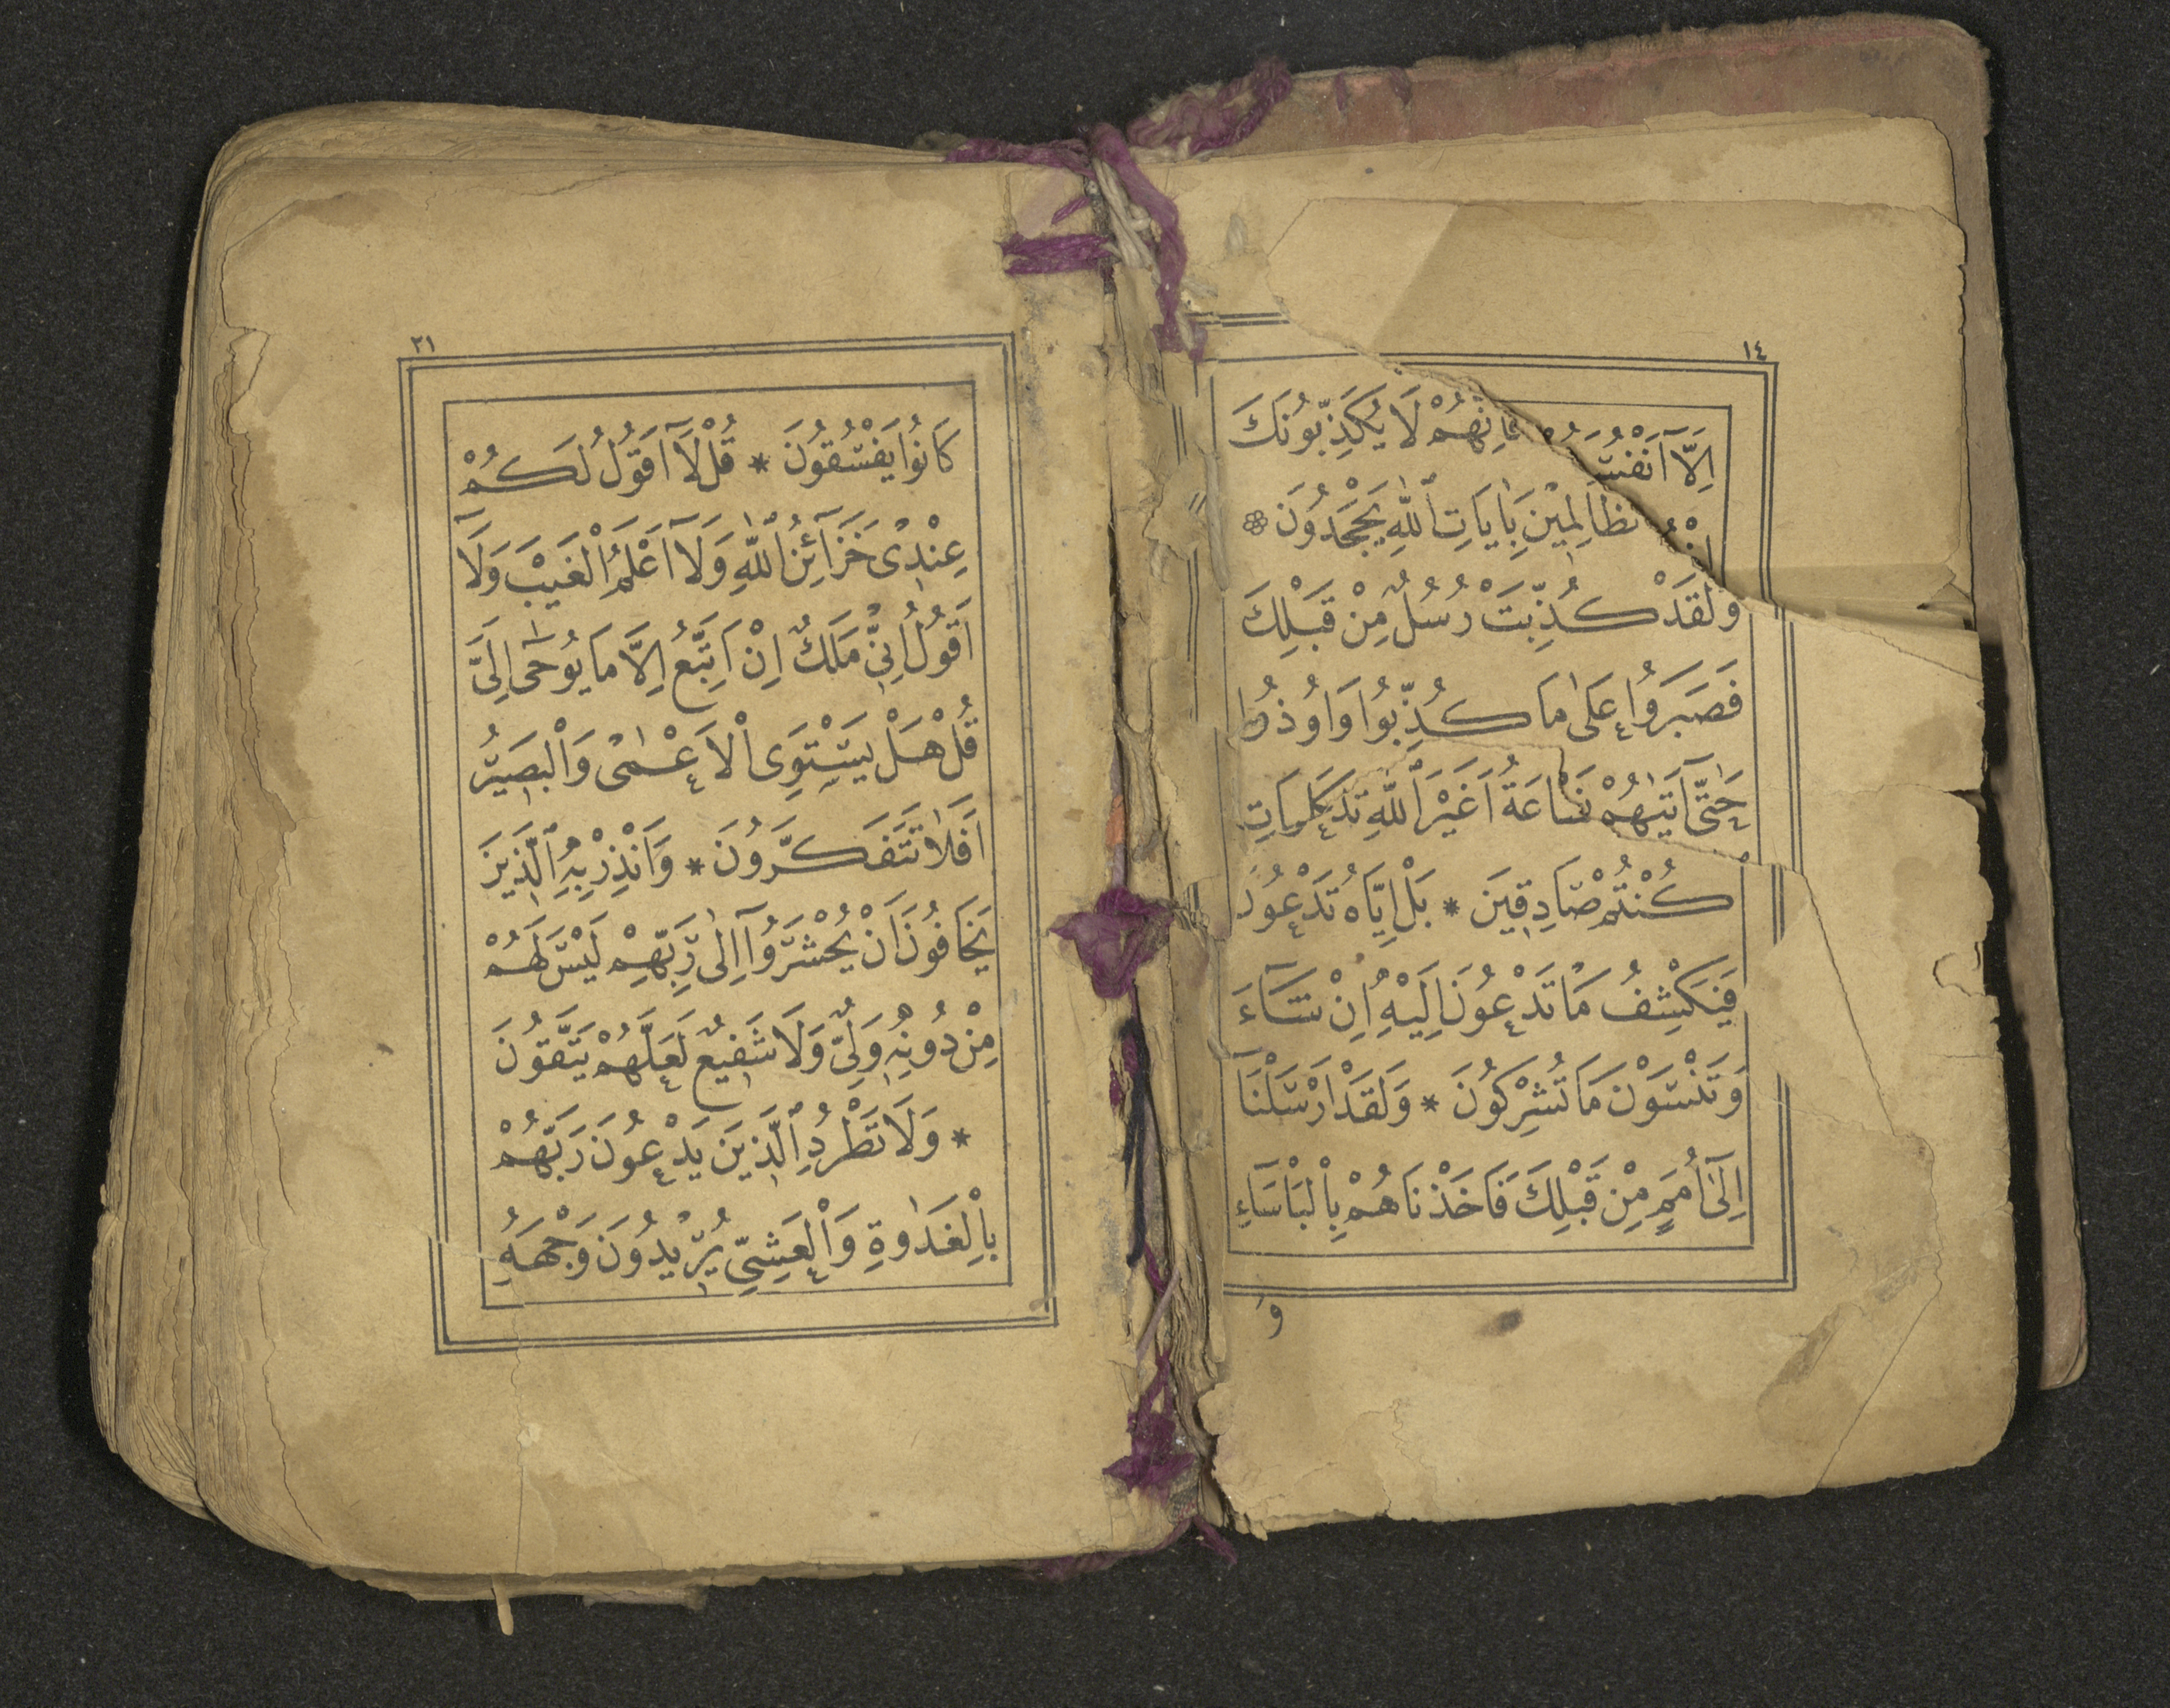 ١٤
اِلَّٓا اَنْفُسَهُمْ فَاِنَّهُمْ لَا يُكَذِّبُونَكَ
الظَّالِمِينَ بِاٰيَاتِ ٱللّٰهِ يَجْحَدُونَ ۞
وَلَقَدْ كُذِّبَتْ رُسُلٌ مِنْ قَبْلِكَ
فَصَبَرُوا عَلٰى مَا كُذِّبُوا وَاُوذُوا
حَتّٰٓى اَتٰيهُمْ
السَّاعَةُ اَغَيْرَ ٱللّٰهِ تَدْعُونَ
كُنْتُمْ صَادِقِينَ * بَلْ اِيَّاهُ تَدْعُونَ
فَيَكْشِفُ مَا تَدْعُونَ اِلَيْهِ اِنْ شَٓاءَ
وَتَنْسَوْنَ مَا تُشْرِكُونَ * وَلَقَدْ اَرْسَلْنَٓا
اِلٰٓى اُمَمٍ مِنْ قَبْلِكَ فَاَخَذْنَاهُمْ بِالْبَأْسَٓاءِ
وَ
٢١
كَانُوا يَفْسُقُونَ * قُلْ لَٓا اَقُولُ لَكُمْ
عِنْدِى خَزَٓائِنُ ٱللّٰهِ وَلَٓا اَعْلَمُ الْغَيْبَ وَلَٓا
اَقُولُ اِنِّى مَلَكٌ اِنْ اَتَّبِعُ اِلَّا مَا يُوحٰٓى اِلَىَّ
قُلْ هَلْ يَسْتَوِى الْاَعْمٰى وَالْبَصِيرُ
اَفَلَا تَتَفَكَّرُونَ * وَاَنْذِرْ بِهِ ٱلَّذِينَ
يَخَافُونَ اَنْ يُحْشَرُٓوا اِلٰى رَبِّهِمْ لَيْسَ لَهُمْ
مِنْ دُونِهِ وَلِىٌّ وَلَا شَفِيعٌ لَعَلَّهُمْ يَتَّقُونَ
* وَلَا تَطْرُدِ ٱلَّذِينَ يَدْعُونَ رَبَّهُمْ
بِالْغَدٰوةِ وَالْعَشِىِّ يُرِيدُونَ وَجْهَهُ